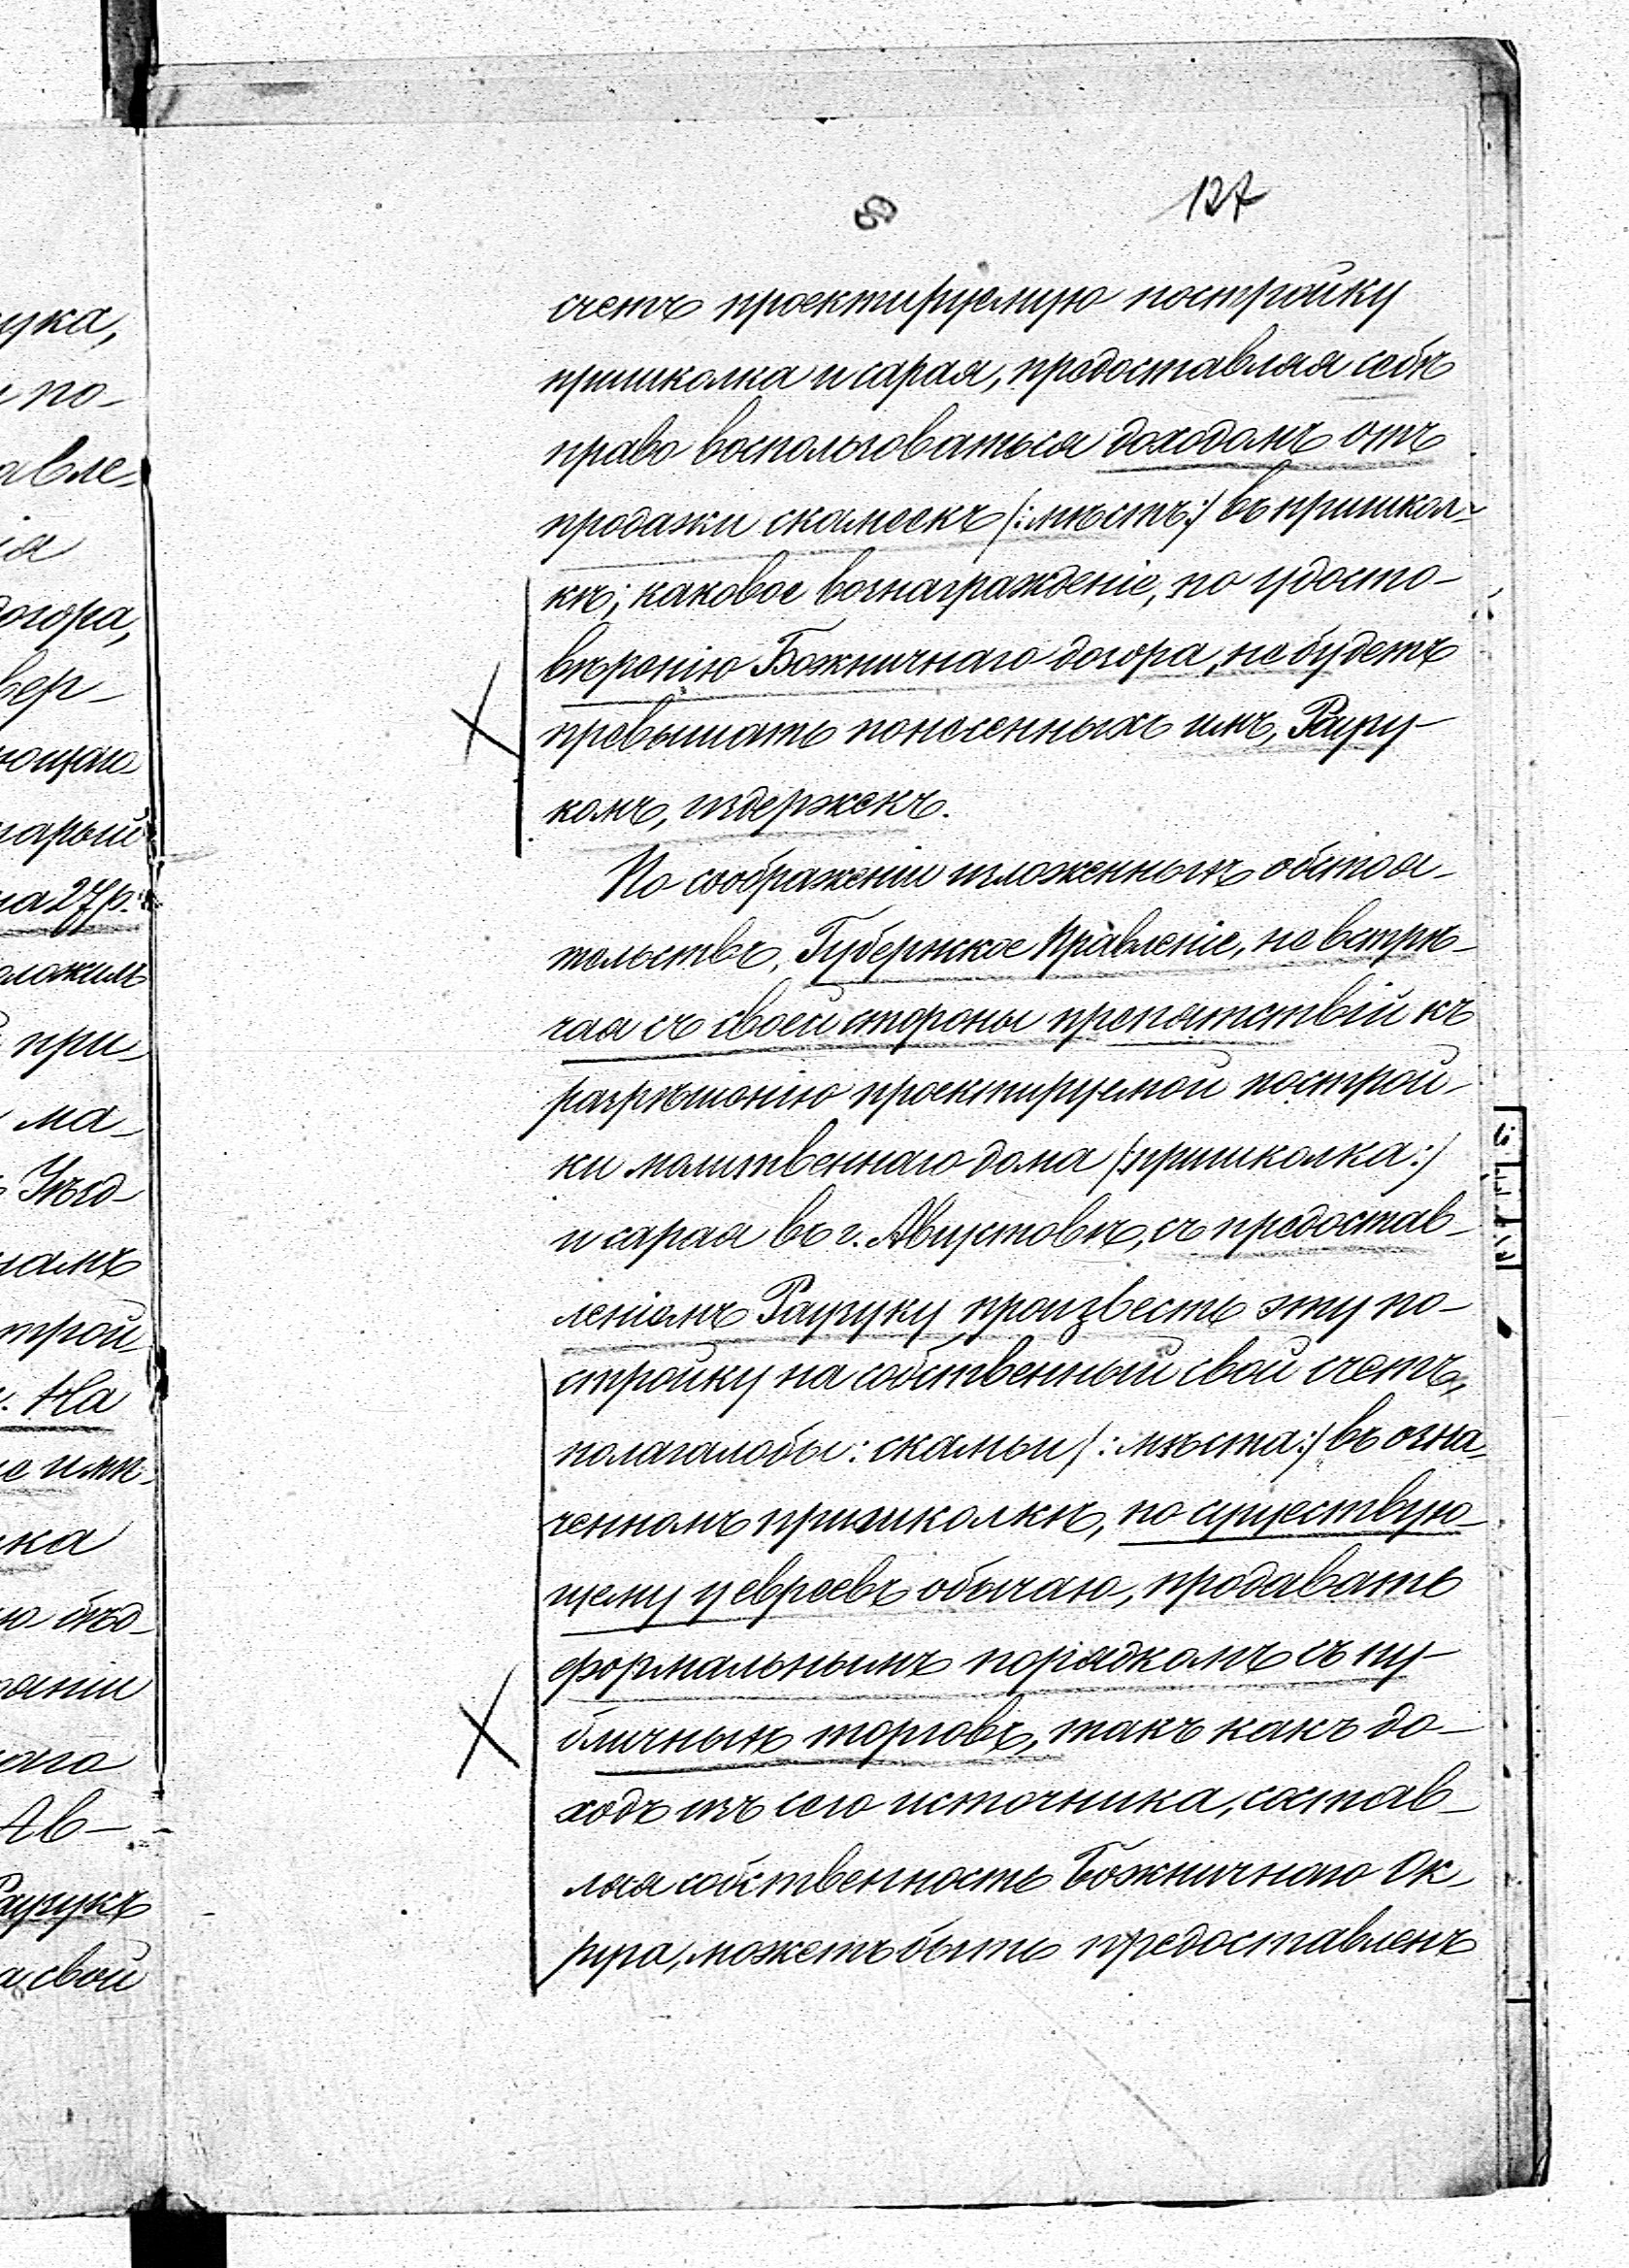 127
счетъ проектируемую постройку
пришколка и сарая, предоставляя себѣ
право воспользоваться доходомъ отъ
продажи скамеекъ /:мѣстъ:/ въ пришкол-
кѣ; каковое вознагражденіе, по удосто-
вѣренію Божничнаго дозора, не будетъ
превышать понесенныхъ имъ, Раузу-
комъ, издержекъ.
По соображеніи изложенныхъ обстоя-
тельствъ, Губернское Правленіе, не встрѣ-
чая съ своей стороны препятствій къ
разрѣшенію проектируемой построй-
ки молитвеннаго дома /:пришколка:/
и сарая въ г. Августовѣ, съ предостав-
леніемъ Раузуку произвесть эту по-
стройку на собственный свой счетъ,
полагалобы: скамьи /:мѣста:/ въ озна-
ченномъ пришколкѣ, по существую-
щему у евреевъ обычаю, продавать
формальнымъ порядкомъ съ пу-
бличныхъ торговъ, такъ какъ до-
ходъ изъ сего источника, состав-
ляя собственность Божничнаго Ок-
руга, можетъ быть предоставленъ
ука,
по-
авле-
ія
дозора,
вер-
на 27 р.
при-
ма-
Уѣзд-
трой-
На
ка
аніи
наго
Ав-
Раузукъ
а свой